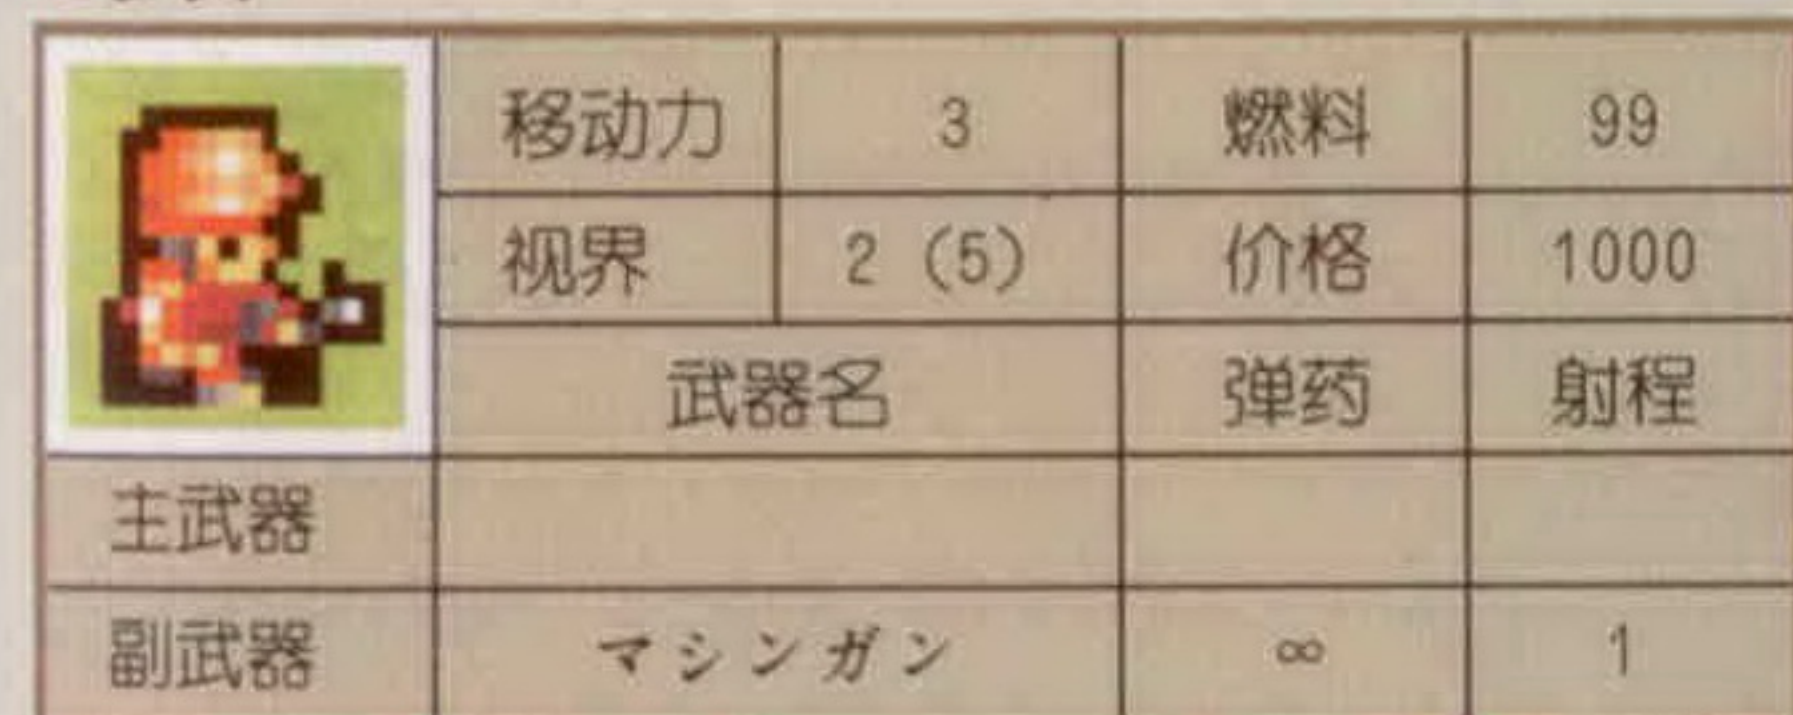 移动力 3 燃料 99
视界 2（5） 价格 1000
武器名 弹药 射程
主武器
副武器 マシンガン ∞ 1